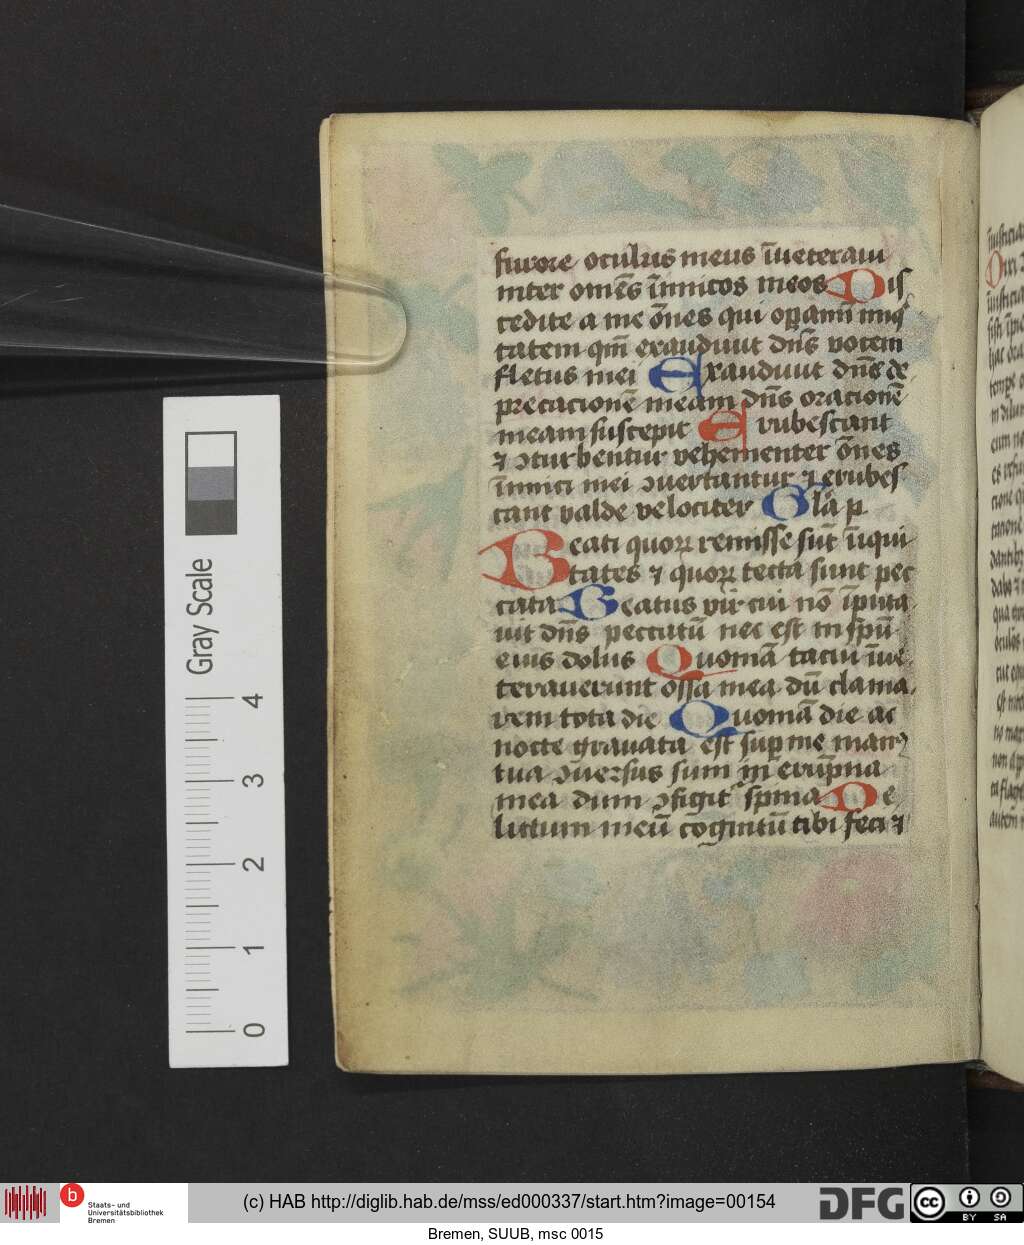 furore oculus meus īueteraui
inter omēs īimicos meos Dis
cedite a me ōnes qui opamī iniq
tatem qm̄ exaudiuit dn̄s vocem
fletus mei Exaudiuit dn̄s de
precacionē meam dn̄s oracionē
meam suscepit Erubescant
⁊ ↄturbentur vehementer ōnes
īimici mei ↄuertantur ⁊ erubes
cant valde velociter Glā p
Beati quoꝝ remisse sūt īiqui
tates ⁊ quoꝝ tecta sunt pec
cata Beatus vir cui nō īputa
uit dn̄s peccatū nec est in spū
eius dolus Quoniā tacui īue
terauerunt ossa mea dū clama
rem tota die Quoniā die ac
nocte grauata est sup me man
tua ↄuersus sum in erūpna
mea dum ↄfigit spina De
lictum meū cognitū tibi feci ⁊
Gray Scale
4
3
2
1
0
b
Staats- und
Universitätsbibliothek
Bremen
(c) HAB http://diglib.hab.de/mss/ed000337/start.htm?image=00154
DFG
cc
BY SA
Bremen, SUUB, msc 0015